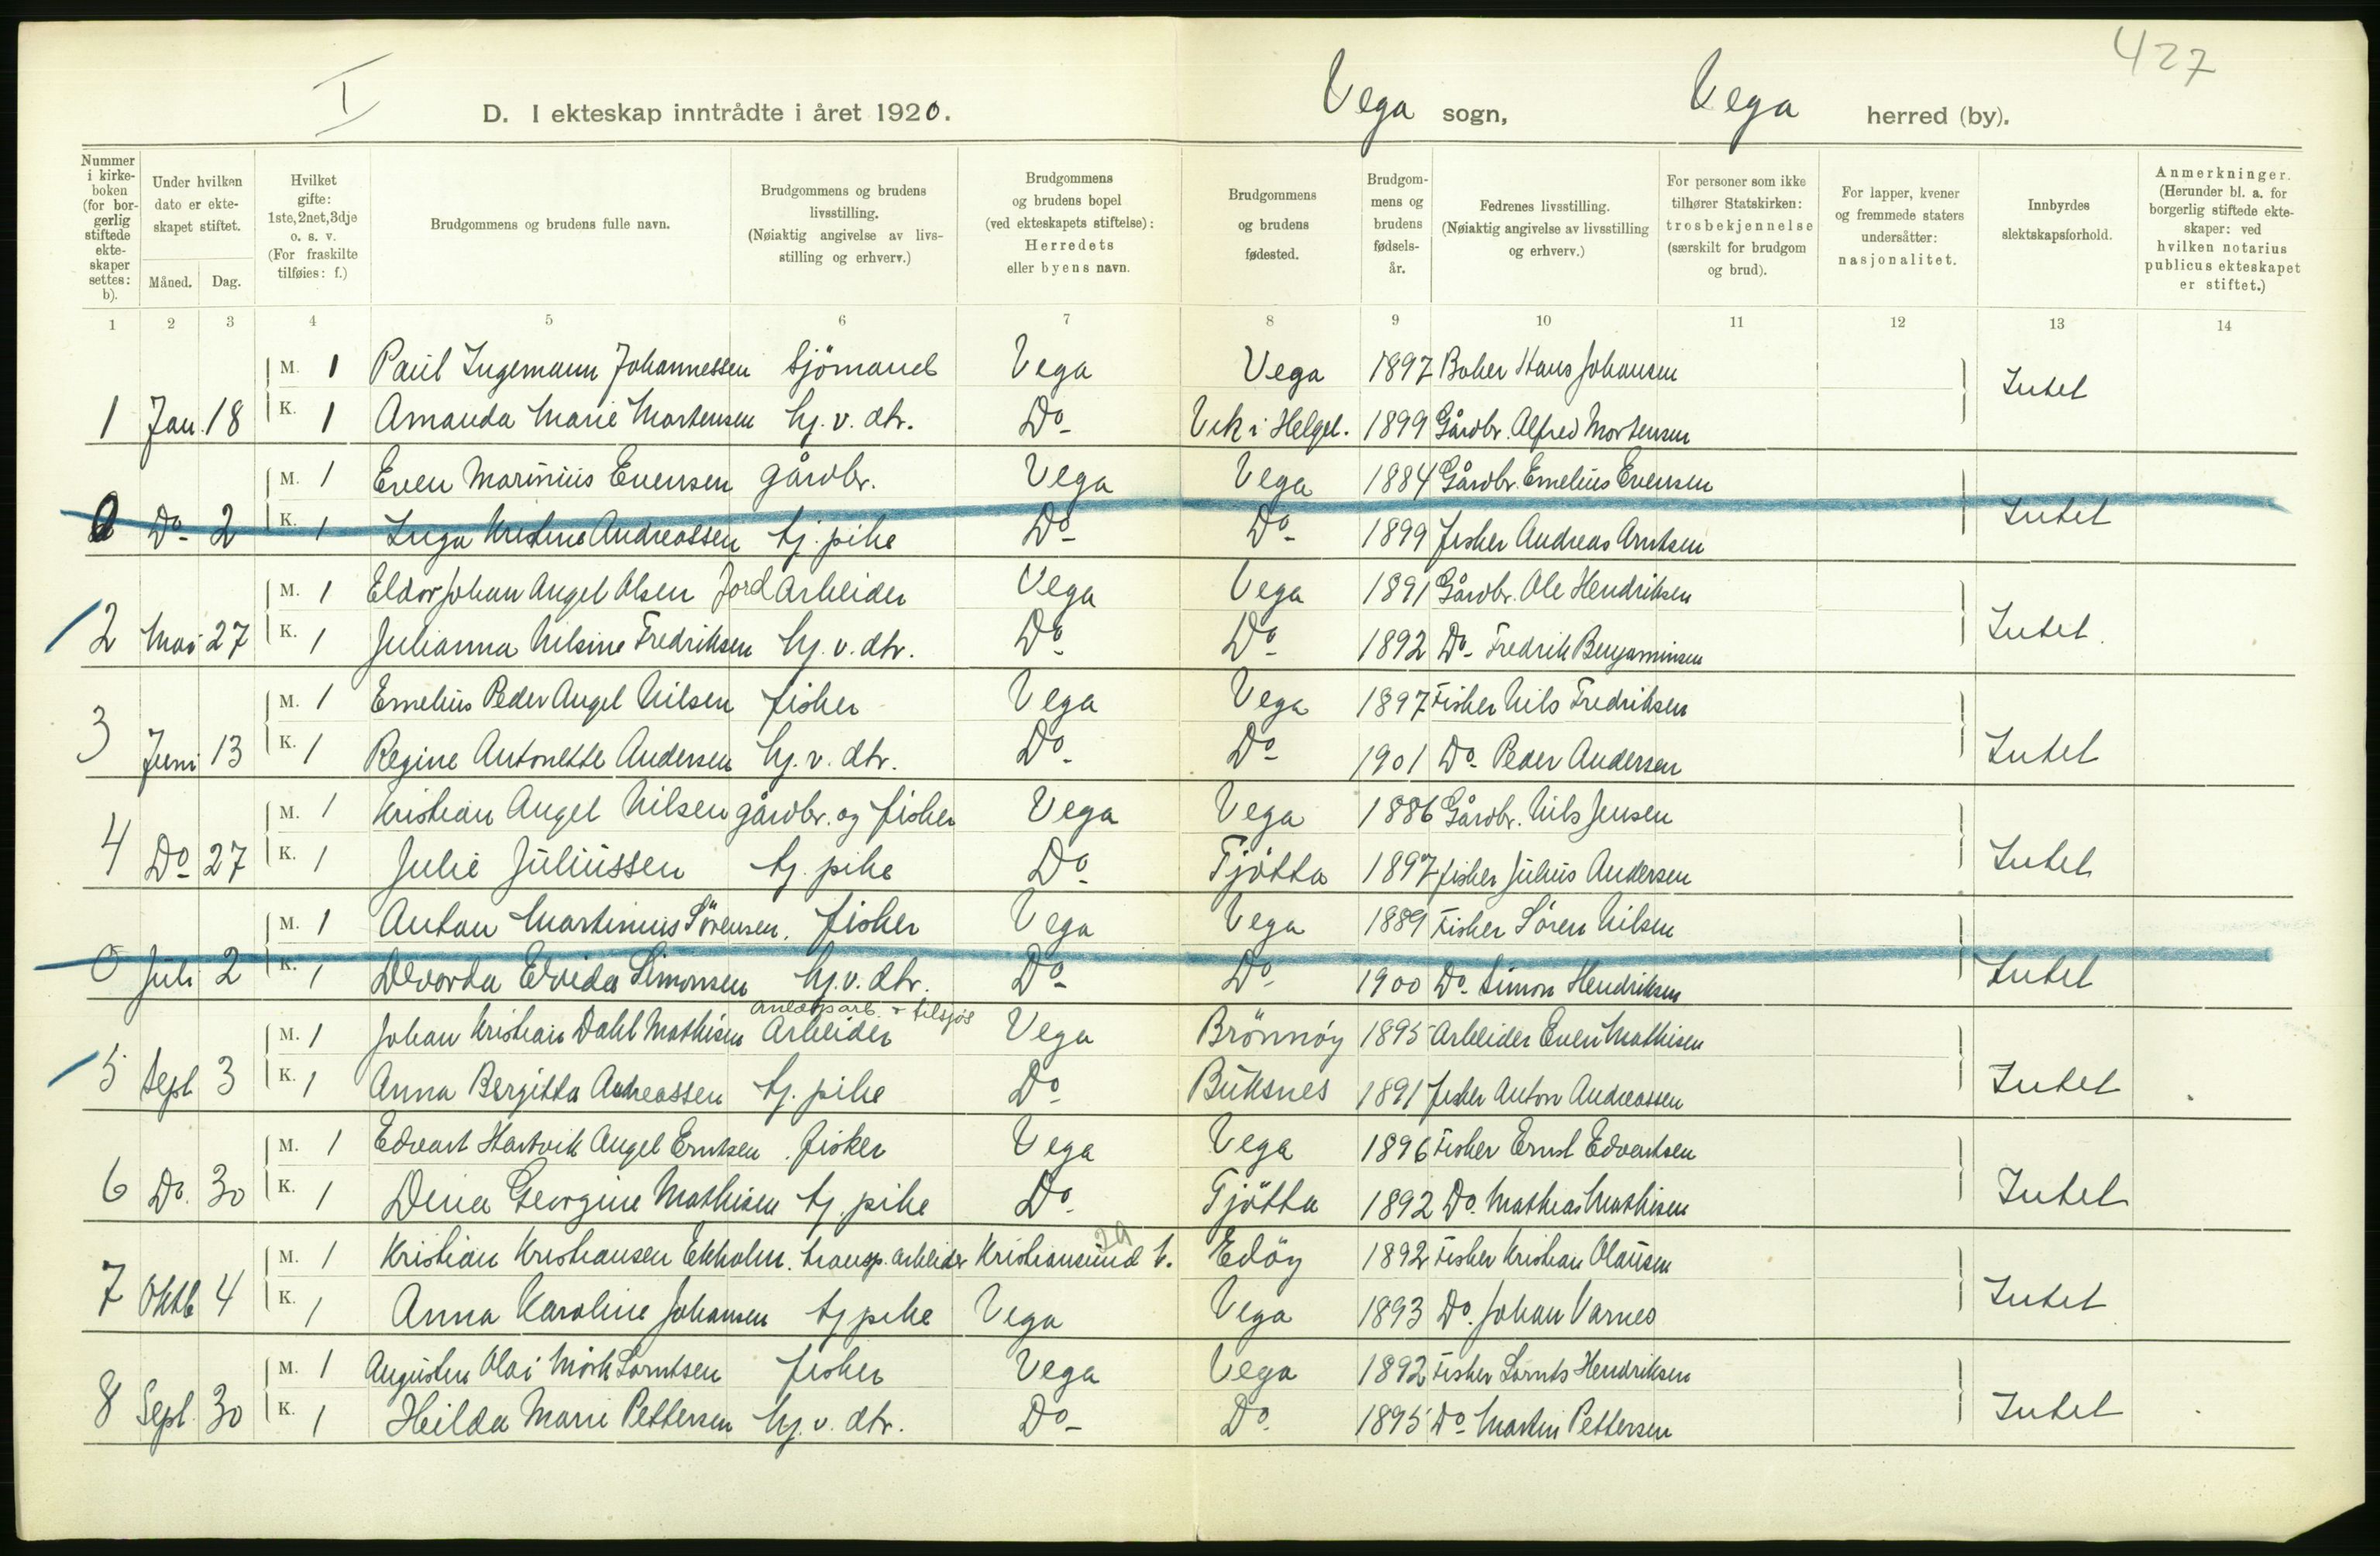 427
I
D. I ekteskap inntrådte i året 1920. Vega sogn, Vega herred (by).
Nummer i kirkeboken (for borgerlig stiftede ekteskaper settes: b).
Under hvilken dato er ekteskapet stiftet.
Måned. Dag.
Hvilket gifte: 1ste, 2net, 3dje o. s. v. (For fraskilte tilføies: f.)
Brudgommens og brudens fulle navn.
Brudgommens og brudens livsstilling. (Nøiaktig angivelse av livsstilling og erhverv.)
Brudgommens og brudens bopel (ved ekteskapets stiftelse): Herredets eller byens navn.
Brudgommens og brudens fødested.
Brudgommens og brudens fødselsår.
Fedrenes livsstilling. (Nøiaktig angivelse av livsstilling og erhverv.)
For personer som ikke tilhører Statskirken: trosbekjennelse (særskilt for brudgom og brud).
For lapper, kvener og fremmede staters undersåtter: nasjonalitet.
Innbyrdes slektskapsforhold.
Anmerkninger. (Herunder bl. a. for borgerlig stiftede ekteskaper: ved hvilken notarius publicus ekteskapet er stiftet.)
1 2 3 4 5 6 7 8 9 10 11 12 13 14
M. 1 Paul Ingemann Johannessen Sjömand Vega Vega 1897 Baker Hans Johansen
1 Jan. 18 K. 1 Amanda Marie Mortensen hj. v. dtr. Do- Vik i Helgel. 1899 Gårdbr. Alfred Mortensen Intet
M. 1 Even Marinius Evensen gårdbr. Vega Vega 1884 Gårdbr. Emelius Evensen
0 Do- 2 K. 1 Inga Kristine Andreassen tj. pike Do- Do- 1899 fisker Andreas Arntsen Intet
M. 1 Eldor Johan Angel Olsen Jord Arbeider Vega Vega 1891 Gårdbr. Ole Hendriksen
2 Mai 27 K. 1 Julianna Nilsine Fredriksen hj. v. dtr. Do- Do- 1892 Do- Fredrik Benjaminsen Intet.
M. 1 Emelius Peder Angel Nilsen fisker Vega Vega 1897 Fisker Nils Fredriksen
3 Juni 13 K. 1 Regine Antonette Andersen hj. v. dtr. Do- Do- 1901 Do- Peder Andersen Intet
M. 1 Kristian Angel Nilsen gårdbr. og fisker Vega Vega 1886 Gårdbr. Nils Jensen
4 Do- 27 K. 1 Julie Juliussen tj. pike Do- Tjötta 1897 fisker Julius Andersen Intet
M. 1 Anton Martinius Sörensen. fisker Vega Vega 1889 Fisker Sören Nilsen
0 Juli 2 K. 1 Devorda Edvida Simonsen hj. v. dtr. Do- Do- 1900 Do- Simon Hendriksen Intet
tilsjøs
M. 1 Johan Kristian Dahl Mathisen Arbeider Vega Brönnöy 1895 Arbeider Even Mathisen
5 Sept 3 K. 1 Anna Bergitta Andreassen tj. pike Do- Buksnes 1891 fisker Anton Andreassen Intet
M. 1 Edvart Hartvik Angel Erntsen. fisker Vega Vega 1896 Fisker Ernst Edvartsen
6 Do. 30 K. 1 Dina Georgine Mathisen tj. pike Do- Tjötta 1892 Do. Mathias Mathisen Intet
29
M. 1 Kristian Kristiansen Ekholm. transp. arbeider Kristiansund N. Edöy 1892 Fisker Kristian Olausen
7 Oktb 4 K. 1 Anna Karoline Johansen tj pike Vega Vega 1893 Do. Johan Varnes Intet
M. 1 Augustin Olai Mörk Lorntsen fisker Vega Vega 1892 Fisker Lornts Hendriksen
8 Sept. 30 K. 1 Heilda Marie Pettersen hj. v. dtr. Do- Do- 1895 Do- Martin Pettersen Intet